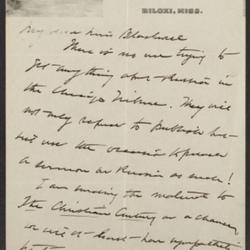 BILOXI, MISS.
My dear Miss Blackwell
There is no use trying to
get anything about Russia in
the Chicago Tribune. They will
not only refuse to publish but
not use the occasion to preach
a sermon on Russia as such!
I am sending the material to
The Christian Century on a chance
or at least have sympathetic